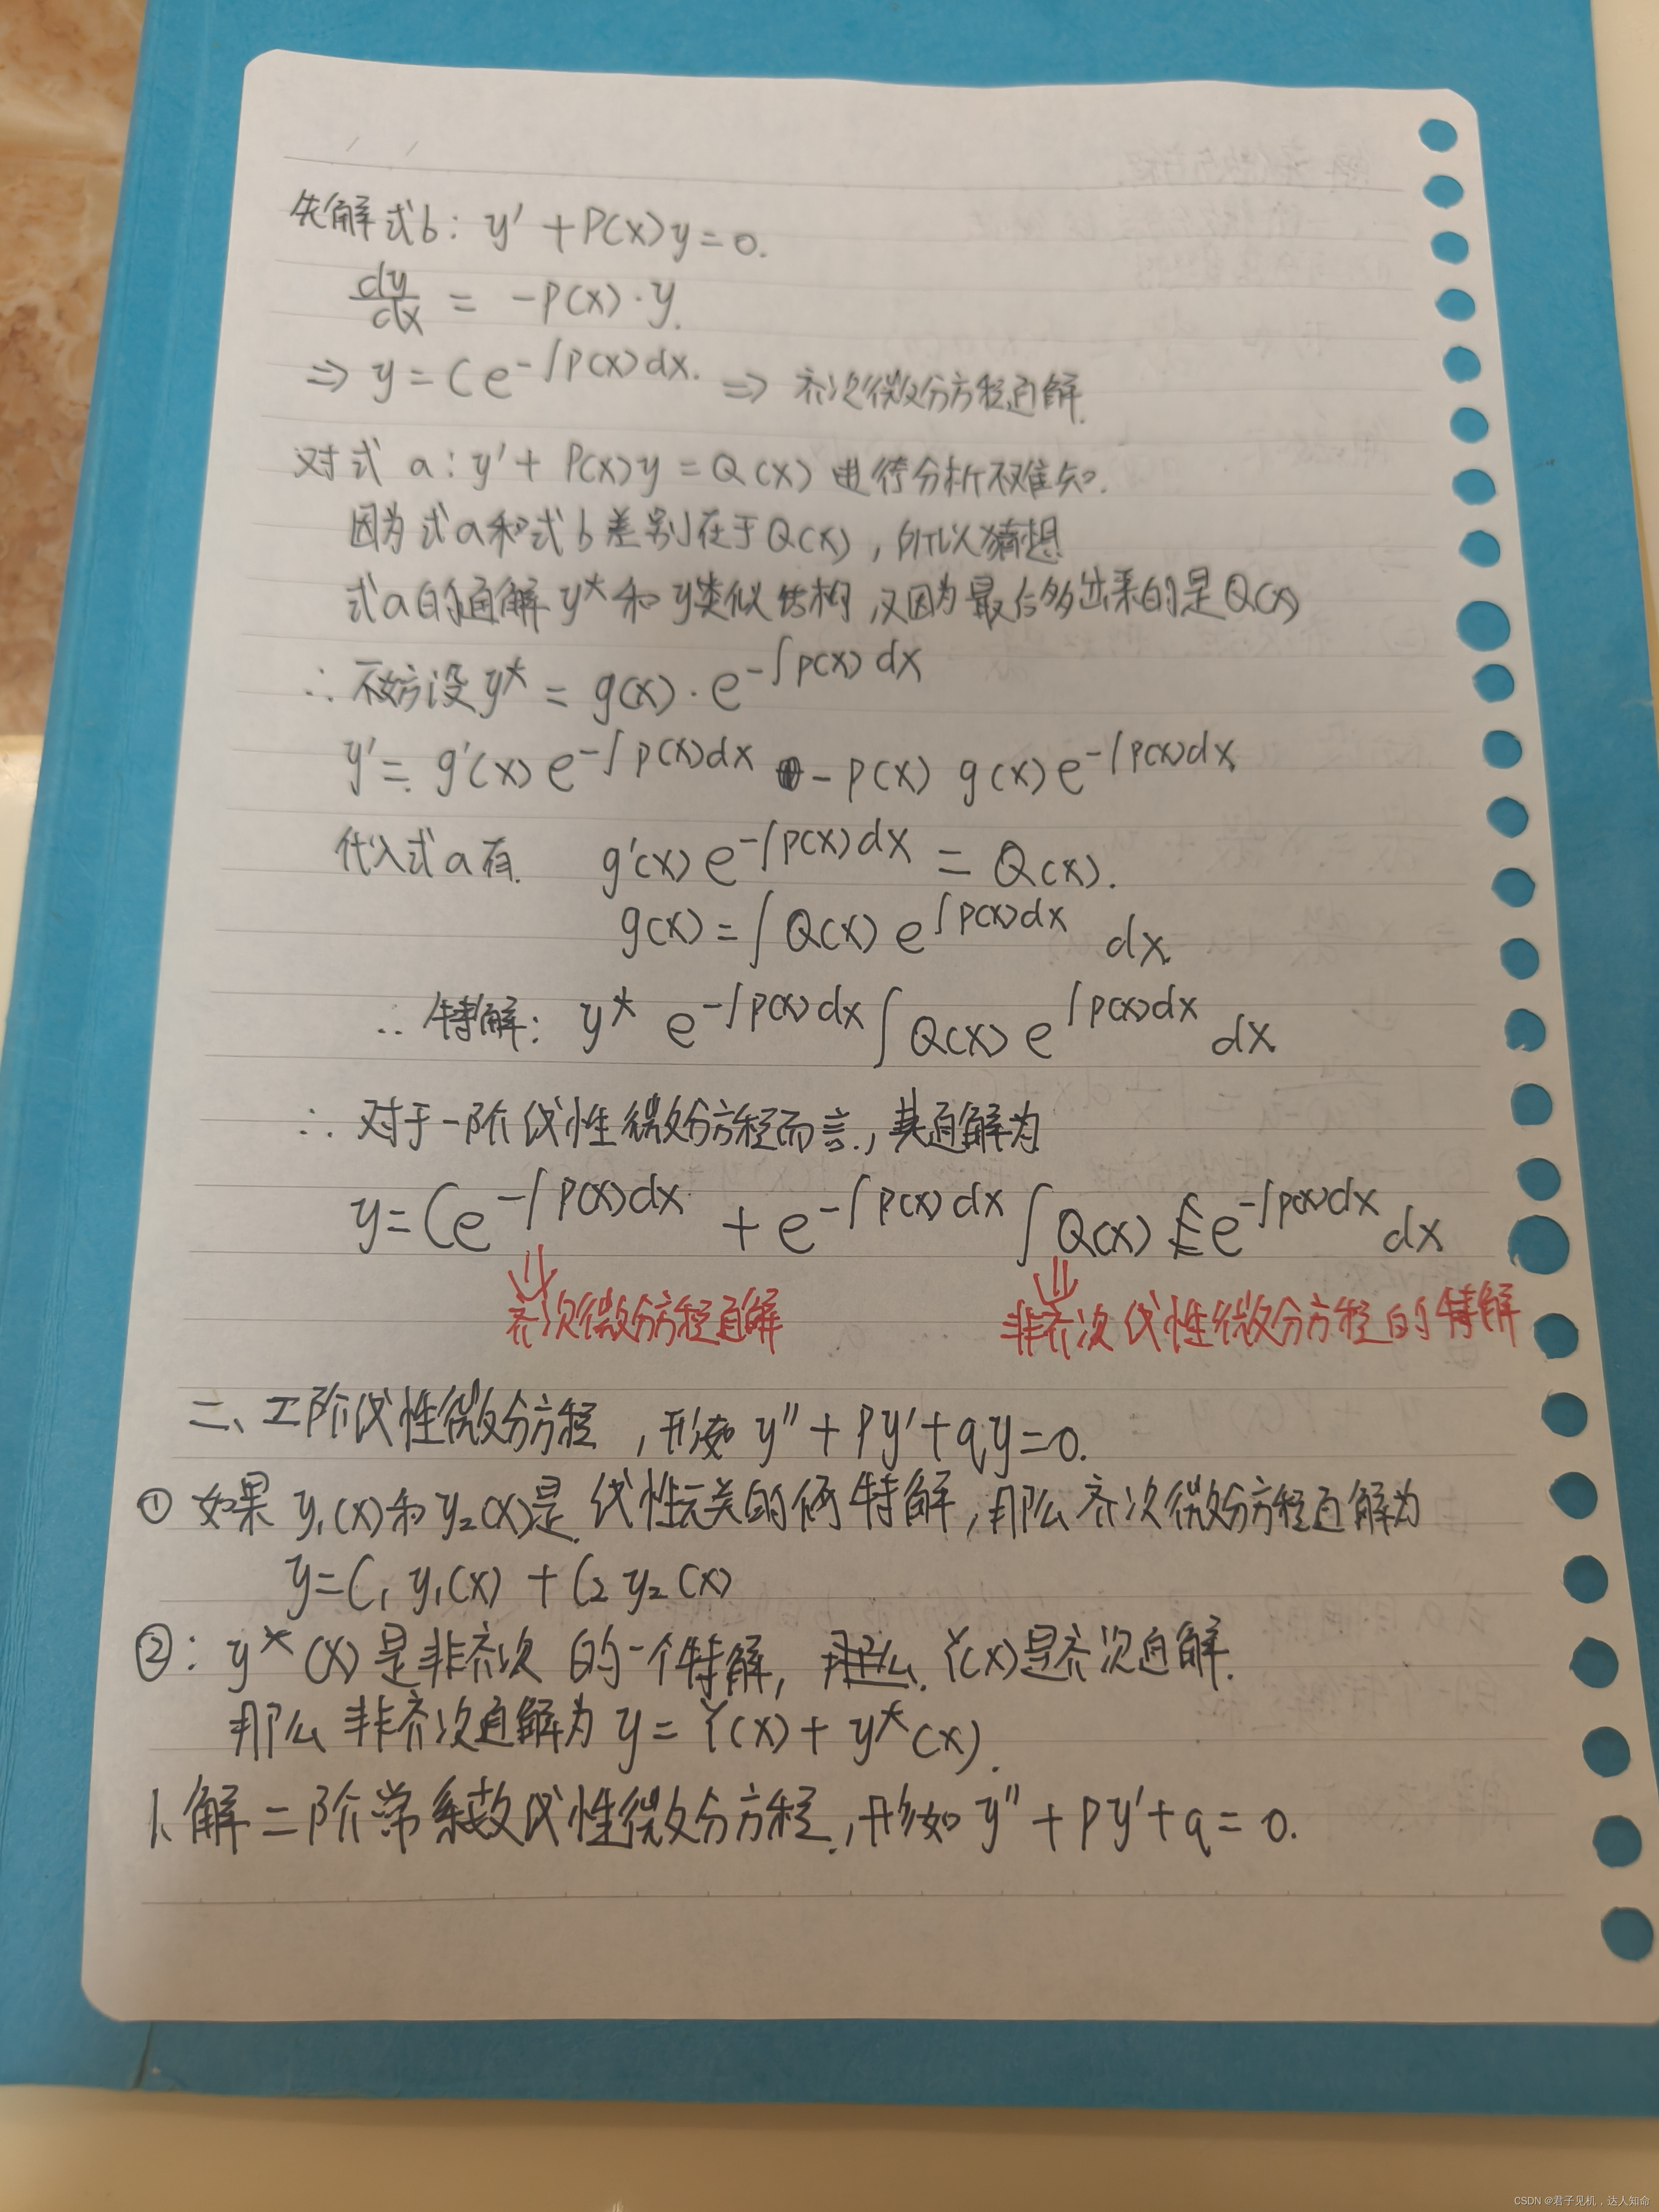 先解式b: y' + P(x)y = 0.
dy/dx = -P(x)·y.
⇒ y = Ce^{-∫P(x)dx}. ⇒ 齐次微分方程通解.
对式 a: y' + P(x)y = Q(x) 进行分析不难知.
因为式a和式b差别在于Q(x), 所以猜想
式a的通解 y* 和 y类似结构, 又因为最后多出来的是Q(x)
∴ 不妨设 y* = g(x)·e^{-∫P(x)dx}
y' = g'(x)e^{-∫P(x)dx} - P(x) g(x)e^{-∫P(x)dx}
代入式a有. g'(x)e^{-∫P(x)dx} = Q(x).
g(x) = ∫Q(x)e^{∫P(x)dx} dx
∴ 特解: y* e^{-∫P(x)dx}∫Q(x)e^{∫P(x)dx} dx
∴ 对于一阶线性微分方程而言, 其通解为
y = Ce^{-∫P(x)dx} + e^{-∫P(x)dx}∫Q(x) e^{-∫P(x)dx} dx
齐次微分方程通解 非齐次线性微分方程的特解
二、二阶线性微分方程, 形如 y'' + Py' + qy = 0.
① 如果 y₁(x)和y₂(x)是线性无关的俩特解, 那么齐次微分方程通解为
y = C₁y₁(x) + C₂y₂(x)
②: y*(x)是非齐次的一个特解, Y(x)是齐次通解.
那么非齐次通解为 y = Y(x) + y*(x).
1. 解二阶常系数线性微分方程, 形如 y'' + Py' + q = 0.
CSDN @君子见机，达人知命